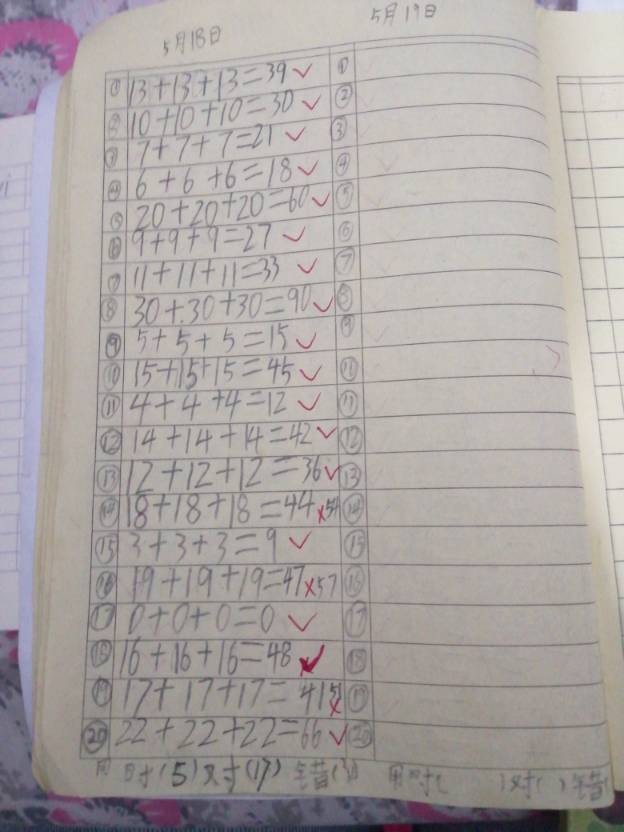 5月18日
5月19日
① 13+13+13=39 ✓ ①
② 10+10+10=30 ✓ ②
③ 7+7+7=21 ✓ ③
④ 6+6+6=18 ✓ ④
⑤ 20+20+20=60 ✓ ⑤
⑥ 9+9+9=27 ✓ ⑥
⑦ 11+11+11=33 ✓ ⑦
⑧ 30+30+30=90 ✓ ⑧
⑨ 5+5+5=15 ✓ ⑨
⑩ 15+15+15=45 ✓
⑪ 4+4+4=12 ✓ ⑪
⑫ 14+14+14=42 ✓ ⑫
⑬ 12+12+12=36 ✓ ⑬
⑭ 18+18+18=44 × 54 ⑭
⑮ 3+3+3=9 ✓ ⑮
⑯ 19+19+19=47 × 57 ⑯
⑰ 0+0+0=0 ✓ ⑰
⑱ 16+16+16=48 ✓ ⑱
⑲ 17+17+17=41 × 51 ⑲
⑳ 22+22+22=66 ✓ ⑳
用时(5)对(17)错(3) 用时( )对( )错(